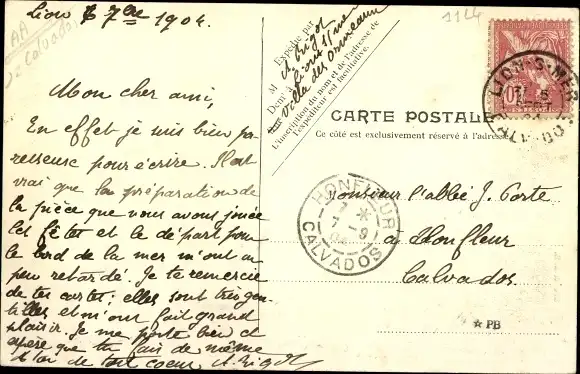 Lion 6 7bre 1904.
Mon cher ami,
En effet je suis bien pa-
resseux pour écrire. Il est
vrai que la préparation de
la pièce que nous avons jouée
ces fêtes et le départ pour
le bord de la mer m'ont un
peu retardé. Je te remercie
de tes cartes; elles sont très gen-
tilles et m'ont fait grand
plaisir. Je me porte bien et
espère que tu fais de même
à toi de tout coeur A. Rigot
AA
Calvados
Expédié par
M A Brigot
Demt à Lion s/mer
villa des Ormeaux
L'inscription du nom et de l'adresse de
l'expéditeur est facultative.
1124
CARTE POSTALE
Ce côté est exclusivement réservé à l'adresse
LION-S-MER
CALVADOS
10
HONFLEUR
7 -9
04
CALVADOS
Monsieur l'abbé J. Porte
à Honfleur
Calvados
★ PB